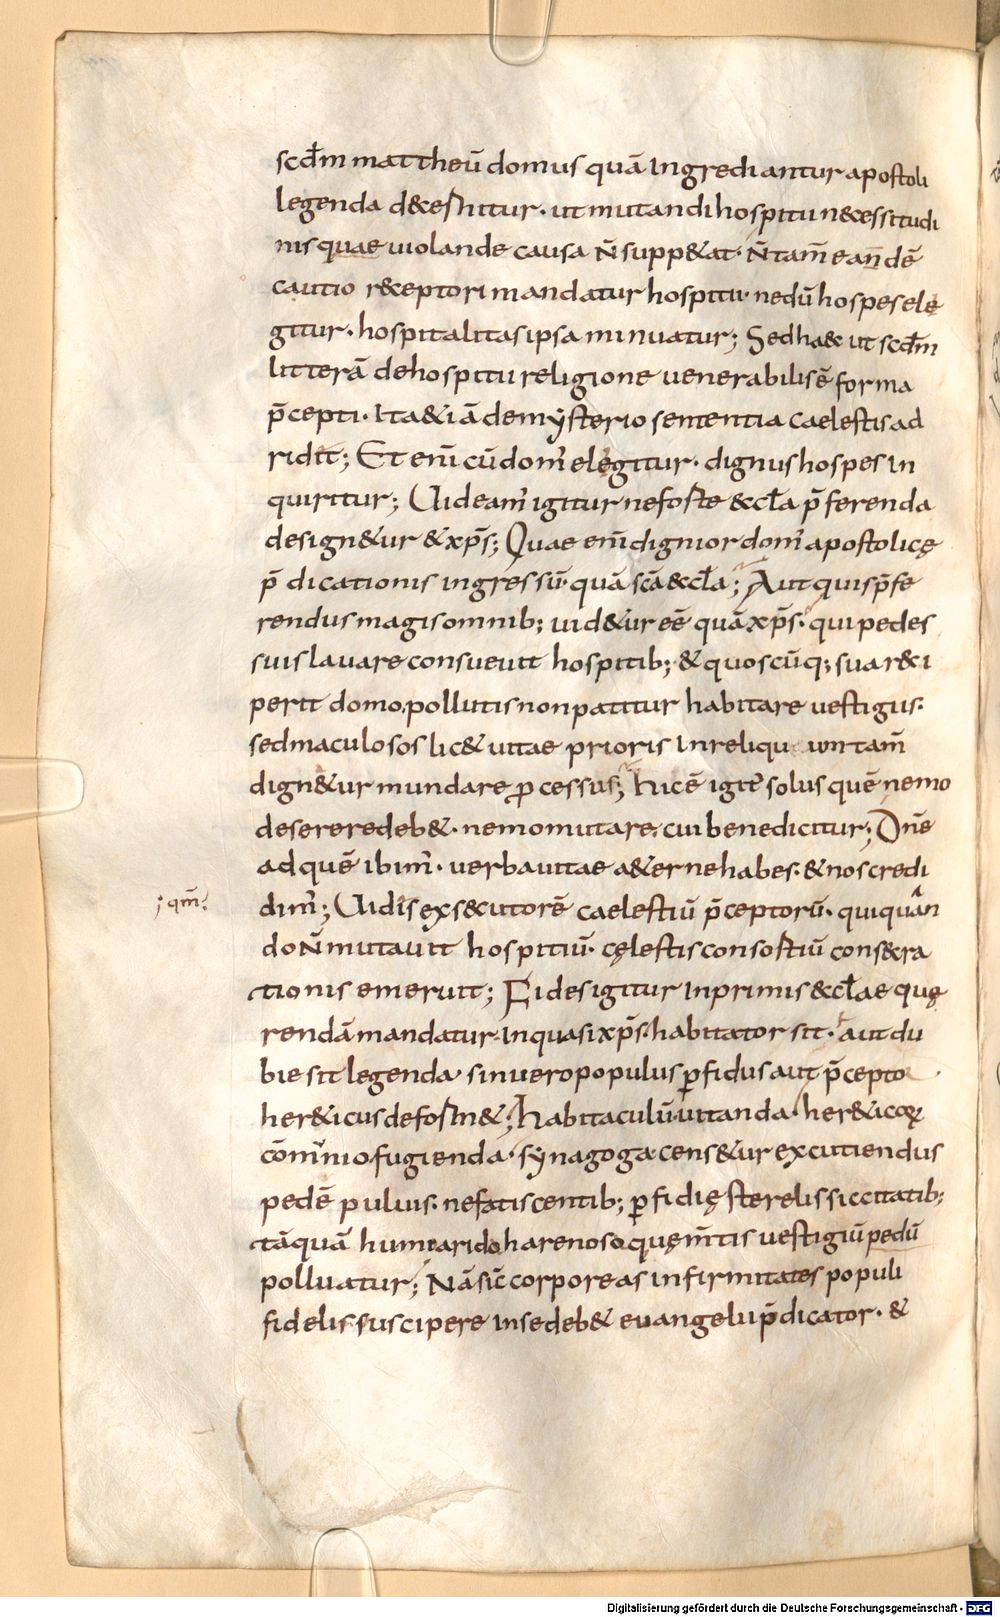 scd̄m mattheū domus quā Ingrediantur apostoli
legenda d&estitur · ut mutandi hospitii n&essitudi
nis quae uiolande causa n̄ supp&at · N̄ tam̄ ean̄dē
cautio r&eptori mandatur hospitii · ne dū hospes ele
gitur · hospitalitas ipsa minuatur; Sed ha&c ut scd̄m
litterā de hospitii religione uenerabilis ē forma
p̄cepti · Ita &iā de mysterio sententia caelestis ad
ridit; Et eni̅ cū dom' elegitur · dignus hospes In
quiritur; Uideam' igitur ne foste &cl̄a p̄ferenda
design&ur & xp̄s; Quae eni̅ dignior dom' apostolicę
p̄dicationis ingressū · quā sc̄a &cl̄a; Aut quis p̄fe
rendus magis omnib; uid&ur eē quā xp̄s · qui pedes
suis lauare consueuit hospitib; & quoscūq; sua r&i
perit domo, pollutis non patitur habitare uestigiis·
sed maculosos lic& uitae prioris In reliqu tam̄
dign&ur mundare ꝓcessus; hic ē igit̄ solus quē nemo
deserere deb& · nemo mutare, cui benedicitur; Dn̄e
ad quē ibim' · uerba uitae a&erne habes · & nos credi
¡qm̄!
dim'; Uidis exs&utorē caelestiū p̄ceptorū · qui quān
do n̄ mutauit hospitiū · cęlestis consostiū cons&ra
tionis emeruit; Fides igitur Inprimis &cl̄ae quę
rendā mandatur · In qua si xp̄s habitator sit · aut du
bie sit legenda · sin uero populus ꝑfidus aut p̄cepto
her&icus defosm&; habitaculū uitanda · her&icoꝝ
cōmunio fugienda · synagoga cens&ur excutiendus
pedē puluis · ne fatiscentib; ꝑfidię sterelis siccitatib;
tāquā humi arido harenoso quę m̄tis uestigiū pedū
polluatur; Nā sic̄ corporeas infirmitates populi
fidelis suscipere In se deb& euangelii p̄dicator · &
Digitalisierung gefördert durch die Deutsche Forschungsgemeinschaft - DFG